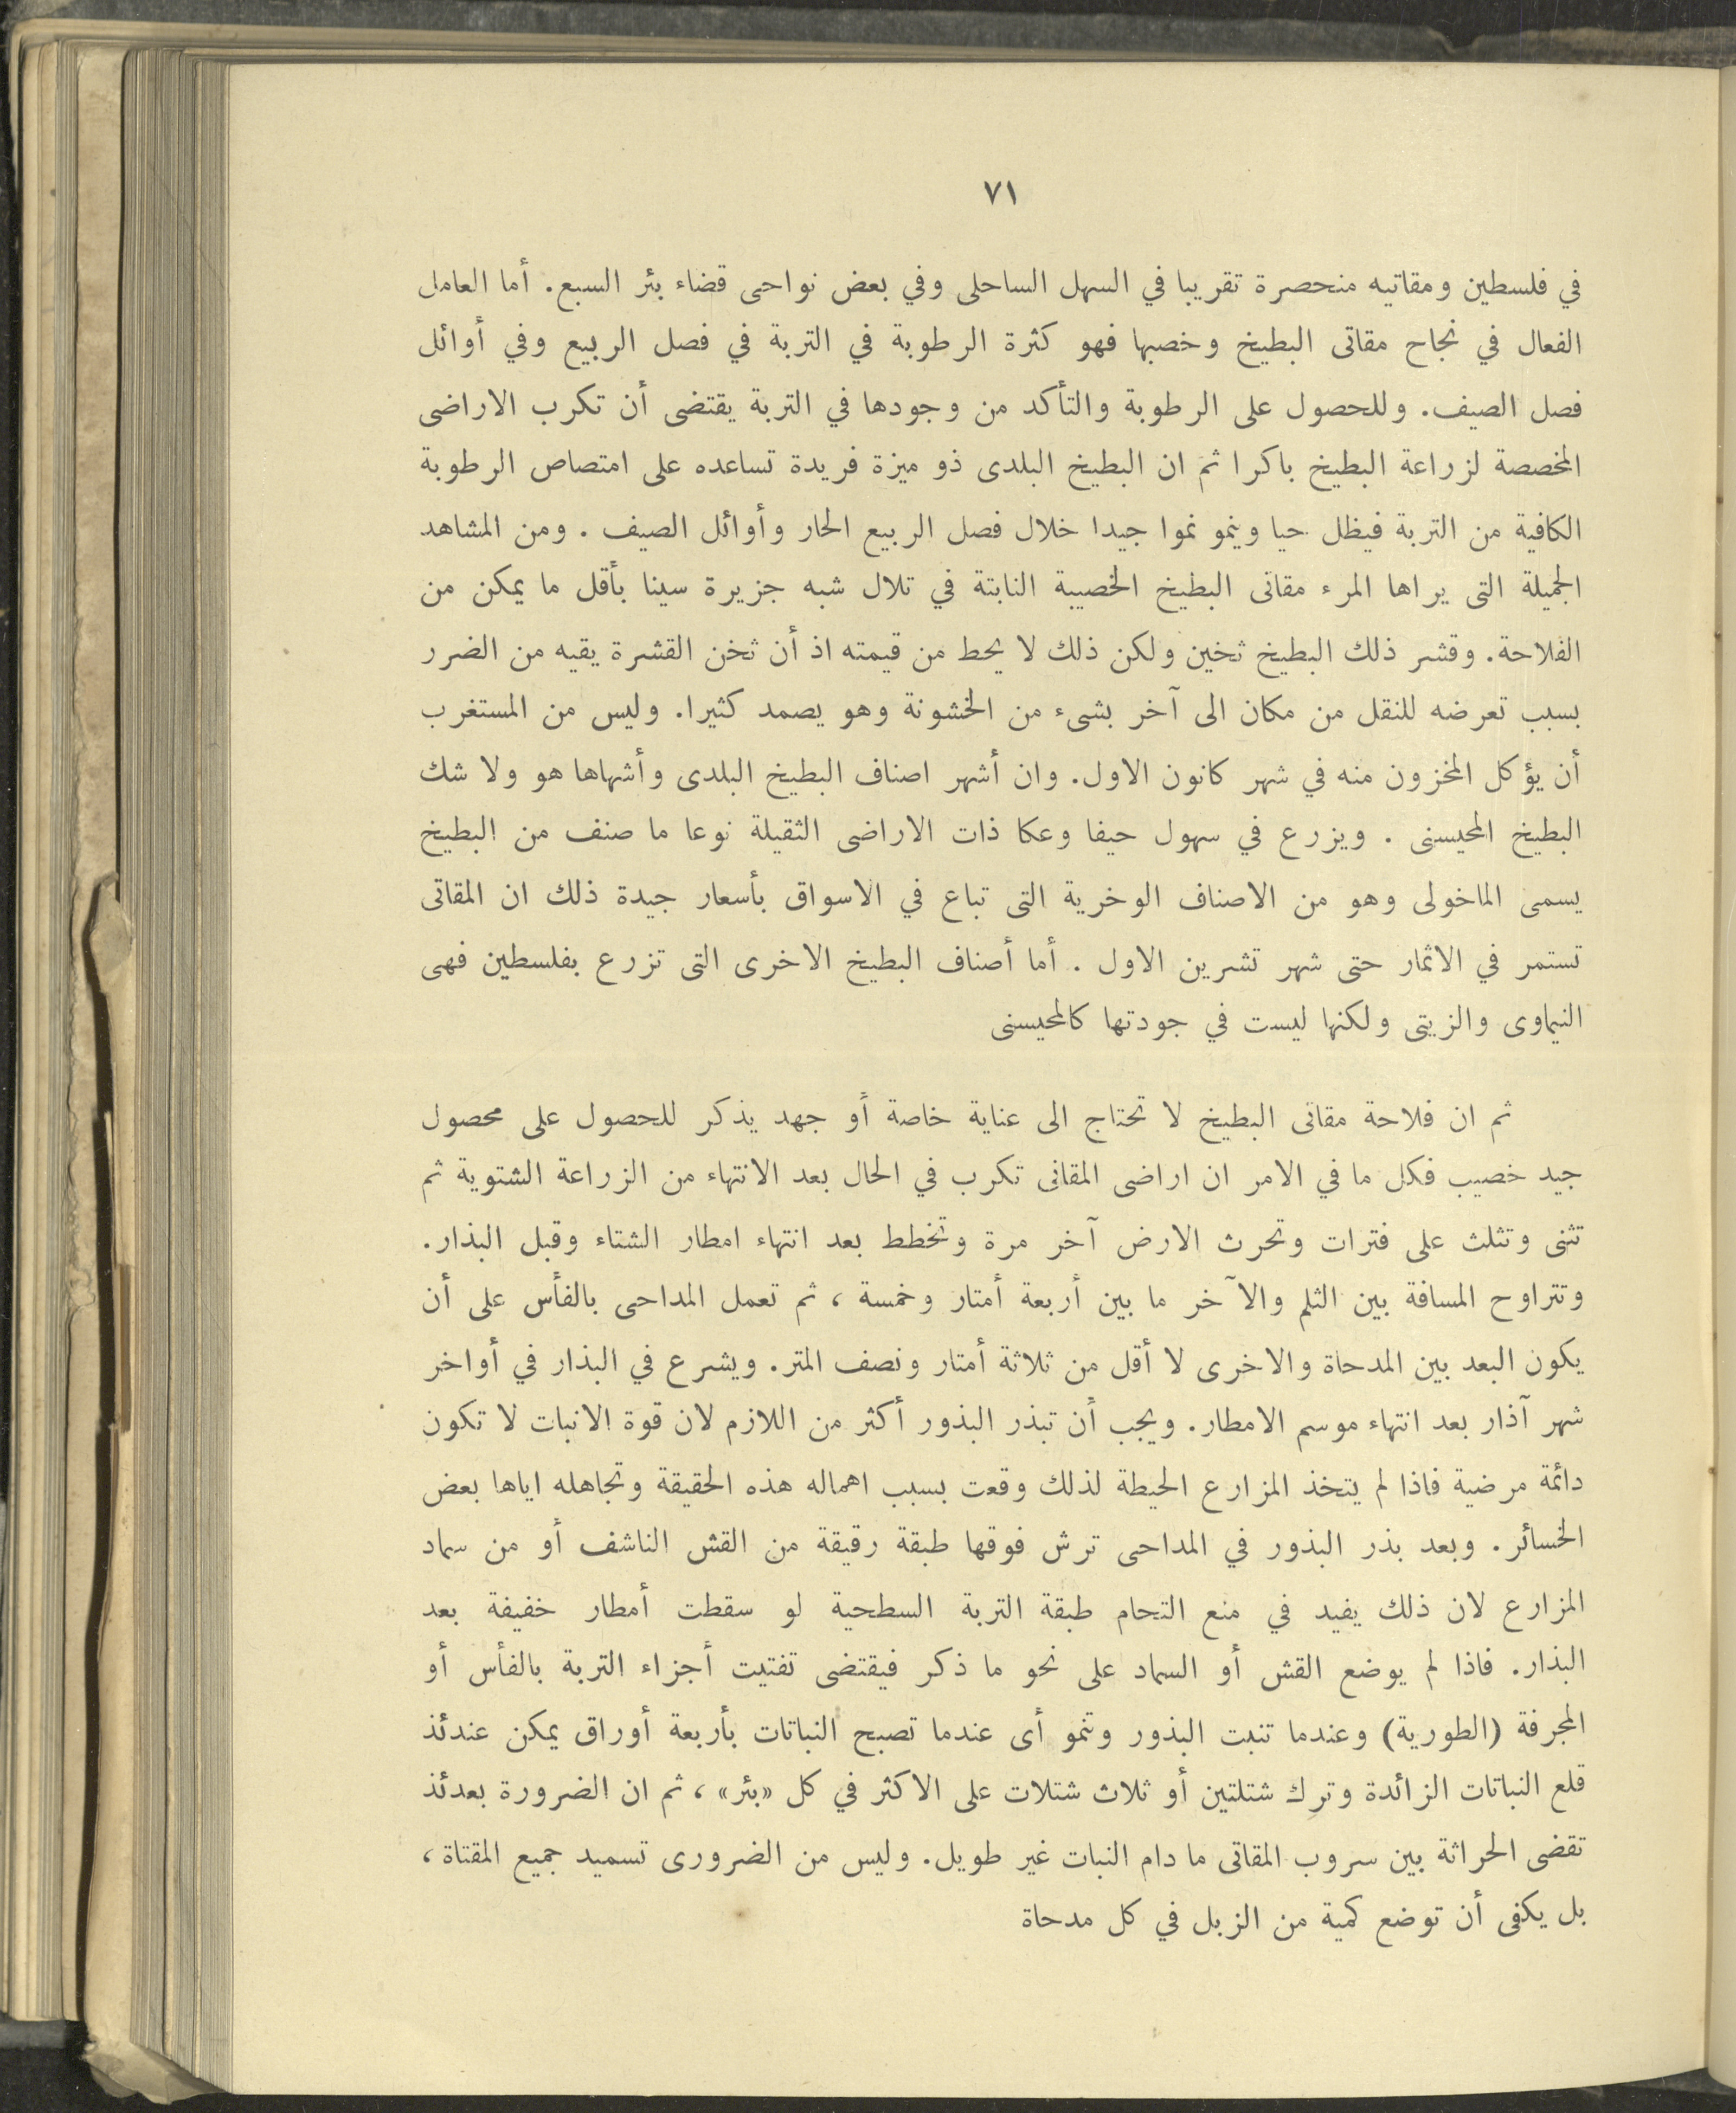 ٧١
في فلسطين ومقاتيه منحصرة تقريبا في السهل الساحلى وفي بعض نواحى قضاء بئر السبع. أما العامل
الفعال في نجاح مقاتى البطيخ وخصبها فهو كثرة الرطوبة في التربة في فصل الربيع وفي أوائل
فصل الصيف. وللحصول على الرطوبة والتأكد من وجودها في التربة يقتضى أن تكرب الاراضى
المخصصة لزراعة البطيخ باكرا ثم ان البطيخ البلدى ذو ميزة فريدة تساعده على امتصاص الرطوبة
الكافية من التربة فيظل حيا وينمو نموا جيدا خلال فصل الربيع الحار وأوائل الصيف . ومن المشاهد
الجميلة التى يراها المرء مقاتى البطيخ الخصيبة النابتة في تلال شبه جزيرة سينا بأقل ما يمكن من
الفلاحة. وقشر ذلك البطيخ ثخين ولكن ذلك لا يحط من قيمته اذ أن ثخن القشرة يقيه من الضرر
بسبب تعرضه للنقل من مكان الى آخر بشىء من الخشونة وهو يصمد كثيرا. وليس من المستغرب
أن يؤكل المخزون منه في شهر كانون الاول. وان أشهر اصناف البطيخ البلدى وأشهاها هو ولا شك
البطيخ المحيسنى . ويزرع في سهول حيفا وعكا ذات الاراضى الثقيلة نوعا ما صنف من البطيخ
يسمى الماخولى وهو من الاصناف الوخرية التى تباع في الاسواق بأسعار جيدة ذلك ان المقاتى
تستمر في الاثمار حتى شهر تشرين الاول . أما أصناف البطيخ الاخرى التى تزرع بفلسطين فهى
النيماوى والزيتى ولكنها ليست في جودتها كالمحيسنى
ثم ان فلاحة مقاتى البطيخ لا تحتاج الى عناية خاصة أو جهد يذكر للحصول على محصول
جيد خصيب فكل ما في الامر ان اراضى المقاتى تكرب في الحال بعد الانتهاء من الزراعة الشتوية ثم
تثنى وتثلث على فترات وتحرث الارض آخر مرة وتخطط بعد انتهاء امطار الشتاء وقبل البذار.
وتتراوح المسافة بين الثلم والآخر ما بين أربعة أمتار وخمسة ، ثم تعمل المداحى بالفأس على أن
يكون البعد بين المدحاة والاخرى لا أقل من ثلاثة أمتار ونصف المتر. ويشرع في البذار في أواخر
شهر آذار بعد انتهاء موسم الامطار. ويجب أن تبذر البذور أكثر من اللازم لان قوة الانبات لا تكون
دائمة مرضية فاذا لم يتخذ المزارع الحيطة لذلك وقعت بسبب اهماله هذه الحقيقة وتجاهله اياها بعض
الخسائر. وبعد بذر البذور في المداحى ترش فوقها طبقة رقيقة من القش الناشف أو من سماد
المزارع لان ذلك يفيد في منع التحام طبقة التربة السطحية لو سقطت أمطار خفيفة بعد
البذار. فاذا لم يوضع القش أو السماد على نحو ما ذكر فيقتضى تفتيت أجزاء التربة بالفأس أو
المجرفة (الطورية) وعندما تنبت البذور وتنمو أى عندما تصبح النباتات بأربعة أوراق يمكن عندئذ
قلع النباتات الزائدة وترك شتلتين أو ثلاث شتلات على الاكثر في كل «بئر» ، ثم ان الضرورة بعدئذ
تقضى الحراثة بين سروب المقاتى ما دام النبات غير طويل. وليس من الضرورى تسميد جميع المقتاة ،
بل يكفى أن توضع كمية من الزبل في كل مدحاة